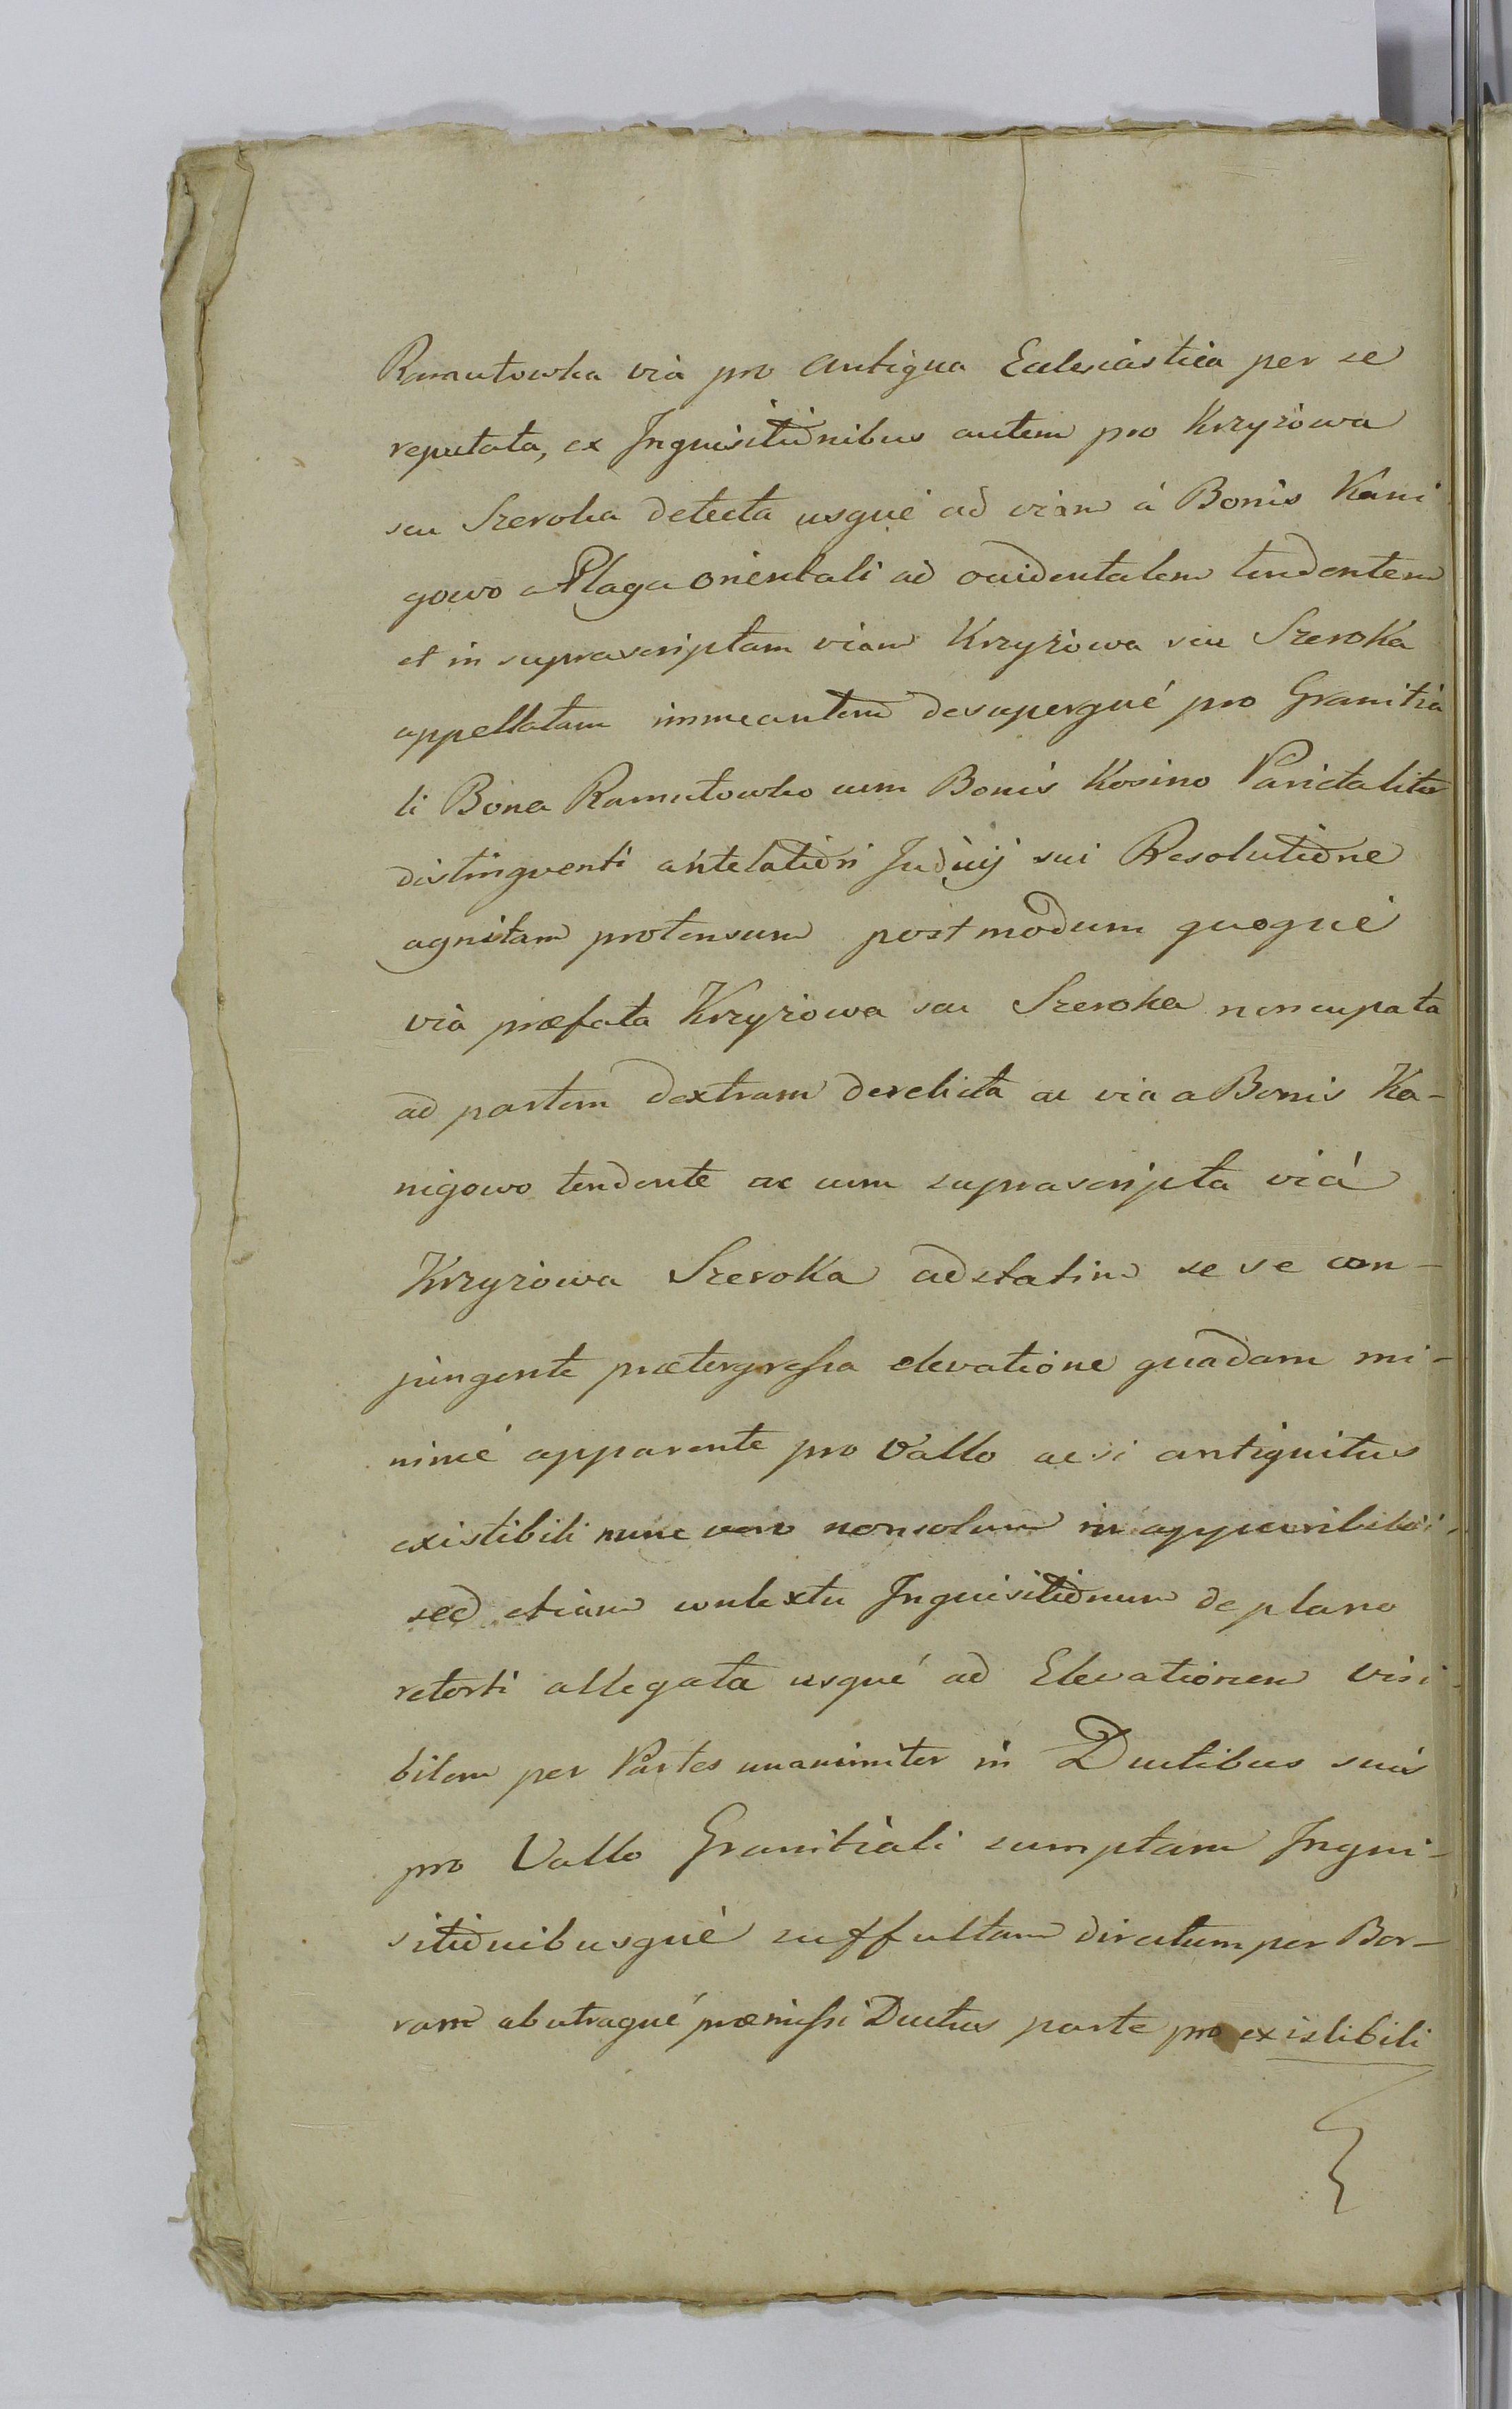 Ramutowka via pro antiqua Eclesiastica per se
reputata, ex Inquisitionibus autem pro Krzyżowa
seu Szeroka detecta usque ad viam à Bonis Kani
gowo a Plaga orientali ad occidentalem tendentem
et in suprascriptam viam Krzyżowa seu Szeroka
appellatam immeantem desuperqué pro Granitia
li Bona Ramutowko cum Bonis Kosino Parietaliter
distingventi antelatiori Judicij sui Resolutione
agnitam protensum postmodum quoqué
via præfata Krzyżowa seu Szeroka noncupata
ad partem dextram derelicta ac via a Bonis Ka-
nigowo tendente ac cum suprascripta viá
Krzyżowa Szeroka adstatim se se con-
jungente prætergressa elevatione quadam mi-
nimé apparente pro Vallo acsi antiquitus
existibili nunc vero nonsolum
sed etiam contextu Inquisitionum de plano
retorti allegata usqué ad Elevationem visi-
bilem per Partes unanimiter in Ductibus suis
pro Vallo Granitiali sumptam Inqui-
sitionibusqué suffultam directum per Bor-
ram ab utraqué præmissi Ductus parte pro existibili